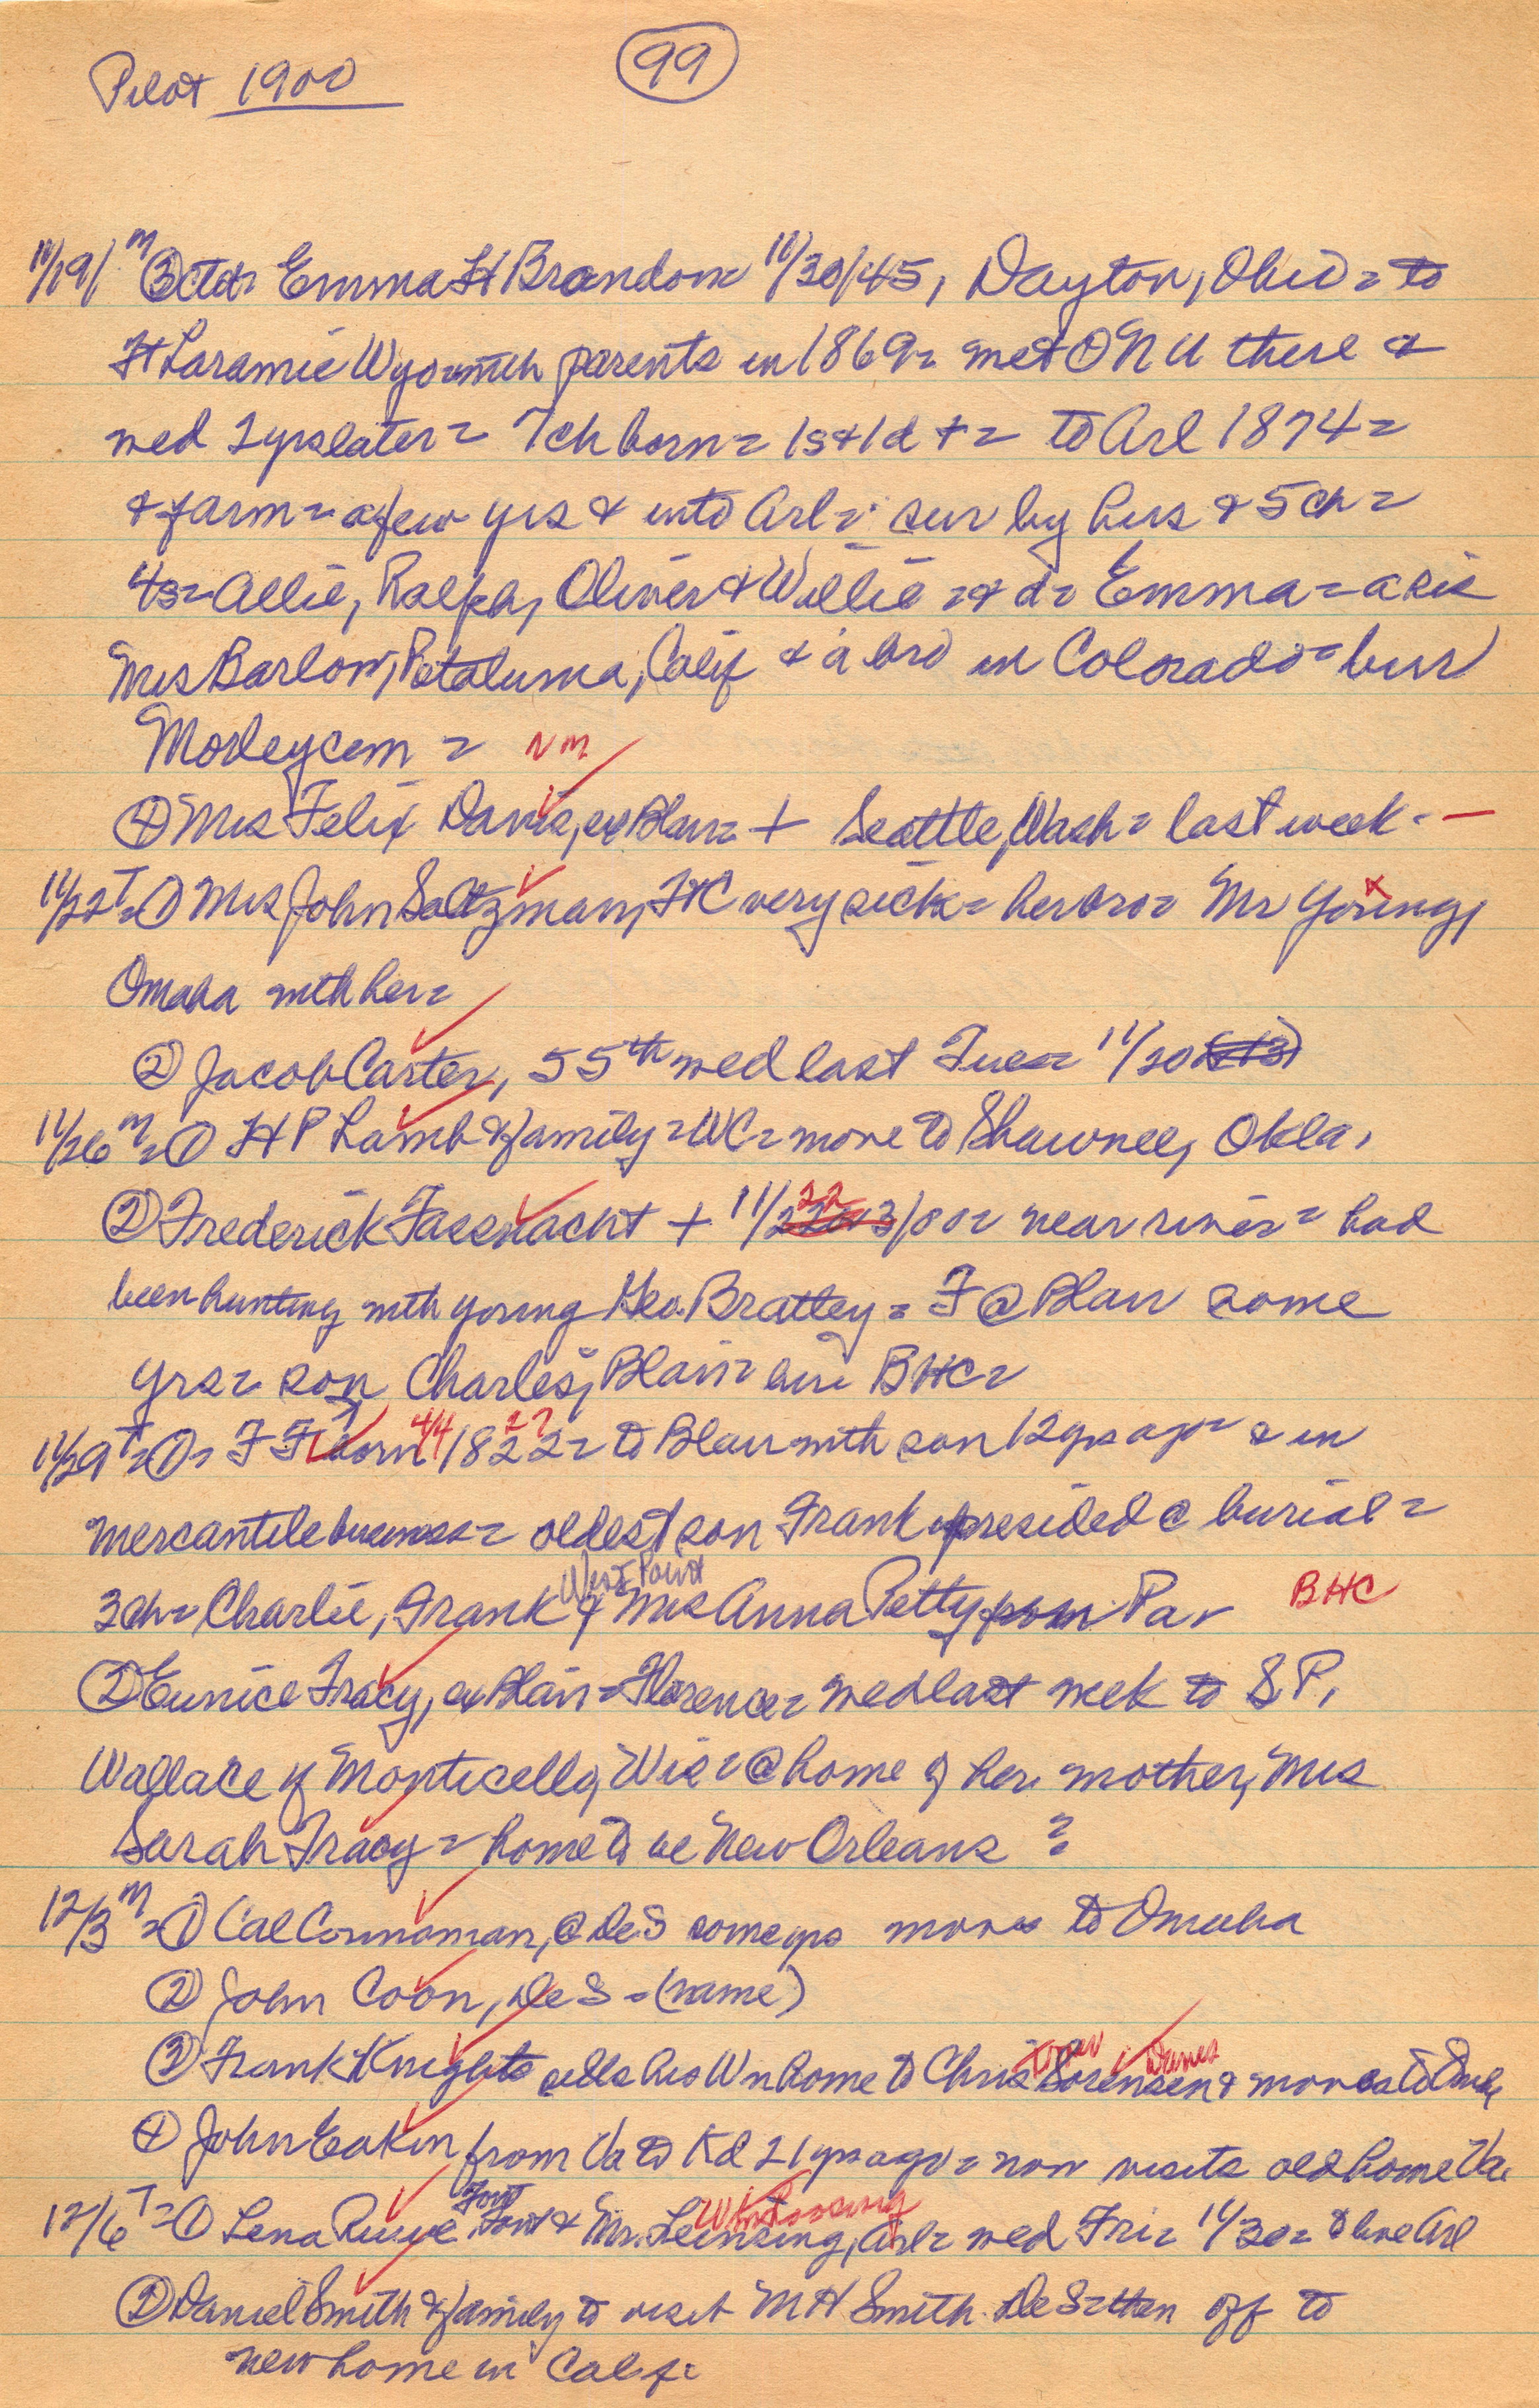 Pilot 1900 99
11/19/ M ③ Ctd= Emma H Brandon= 10/30/45, Dayton, Ohio = to
Ft Laramie Wyo = with parents in 1869 = met O N U there &
wed 2 yrs later = 7 ch born = 1s & 1d + = to Arl 1874 =
& farm = a few yrs & into Arl = sur by hus & 5 ch =
4s = Allie, Ralph, Oliver & Willie = & d = Emma = a sis
Mrs Barlow, Petaluma, Calif & a bro in Colorado = bur
Morley cem = NM
④ Mrs Felix Davis, ex Blair = + Seattle, Wash = last week -
11/22 T = ① Mrs John Saltzman, FtC very sick = her bro = Mr Young,
Omaha with her =
② Jacob Carter, 55th wed last Tues = 11/20
11/26 M = ① H P Lamb & family = WC = move to Shawnee, Okla,
② Frederick Fassnacht + 11/22/00 = near river = had
been hunting with young Geo. Brattey = F @ Blair some
yrs = son Charles, Blair = bur BHC =
11/29 T = ① = F F born 4/4 1822 = to Blair with son 12 yrs ago = & in
mercantile business = oldest son Frank presided @ burial =
3 ch = Charlie, Frank West Point & Mrs Anna Petty Pa BHC
② Eunice Tracy, ex Blair = Florence = wed last week to S P,
Wallace of Monticello, Wis = @ home of her mother, Mrs
Sarah Tracy = home to be New Orleans ?
12/3 M = ① Cal Connoman, @ DeS some yrs moves to Omaha
② John Coon, DeS = (name)
③ Frank Knights sells his Wn home to Chris Sorensen & moves to Omaha
④ John Eakin from Va to Kd 21 yrs ago = now visits old home Va
12/6 T = ① Lena Ruwe Font & Mr. Leinsing, Arl = wed Fri = 11/30 = & live Arl
② Daniel Smith & family to visit M H Smith DeS = then off to
new home in Calif =